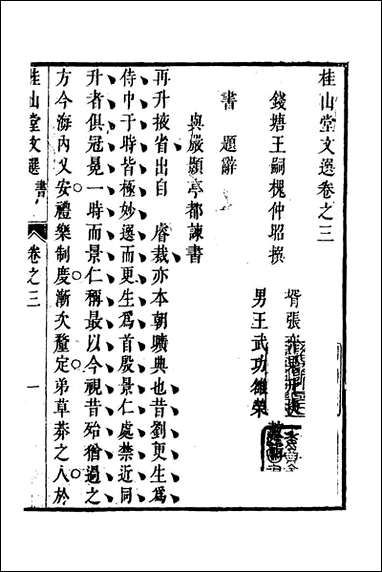 桂山堂文選卷之三
錢塘王嗣槐仲昭撰
壻張
男王武功維榮
書 題辭
與嚴顥亭都諫書
再升掖省出自 睿裁亦本朝曠典也昔劉更生爲
侍中于時皆極妙選而更生爲首殷景仁處禁近同
升者俱冠冕一時而景仁稱最以今視昔殆猶過之
方今海內乂安禮樂制度漸次釐定弟草莽之人於
桂山堂文選 書 卷之三 一